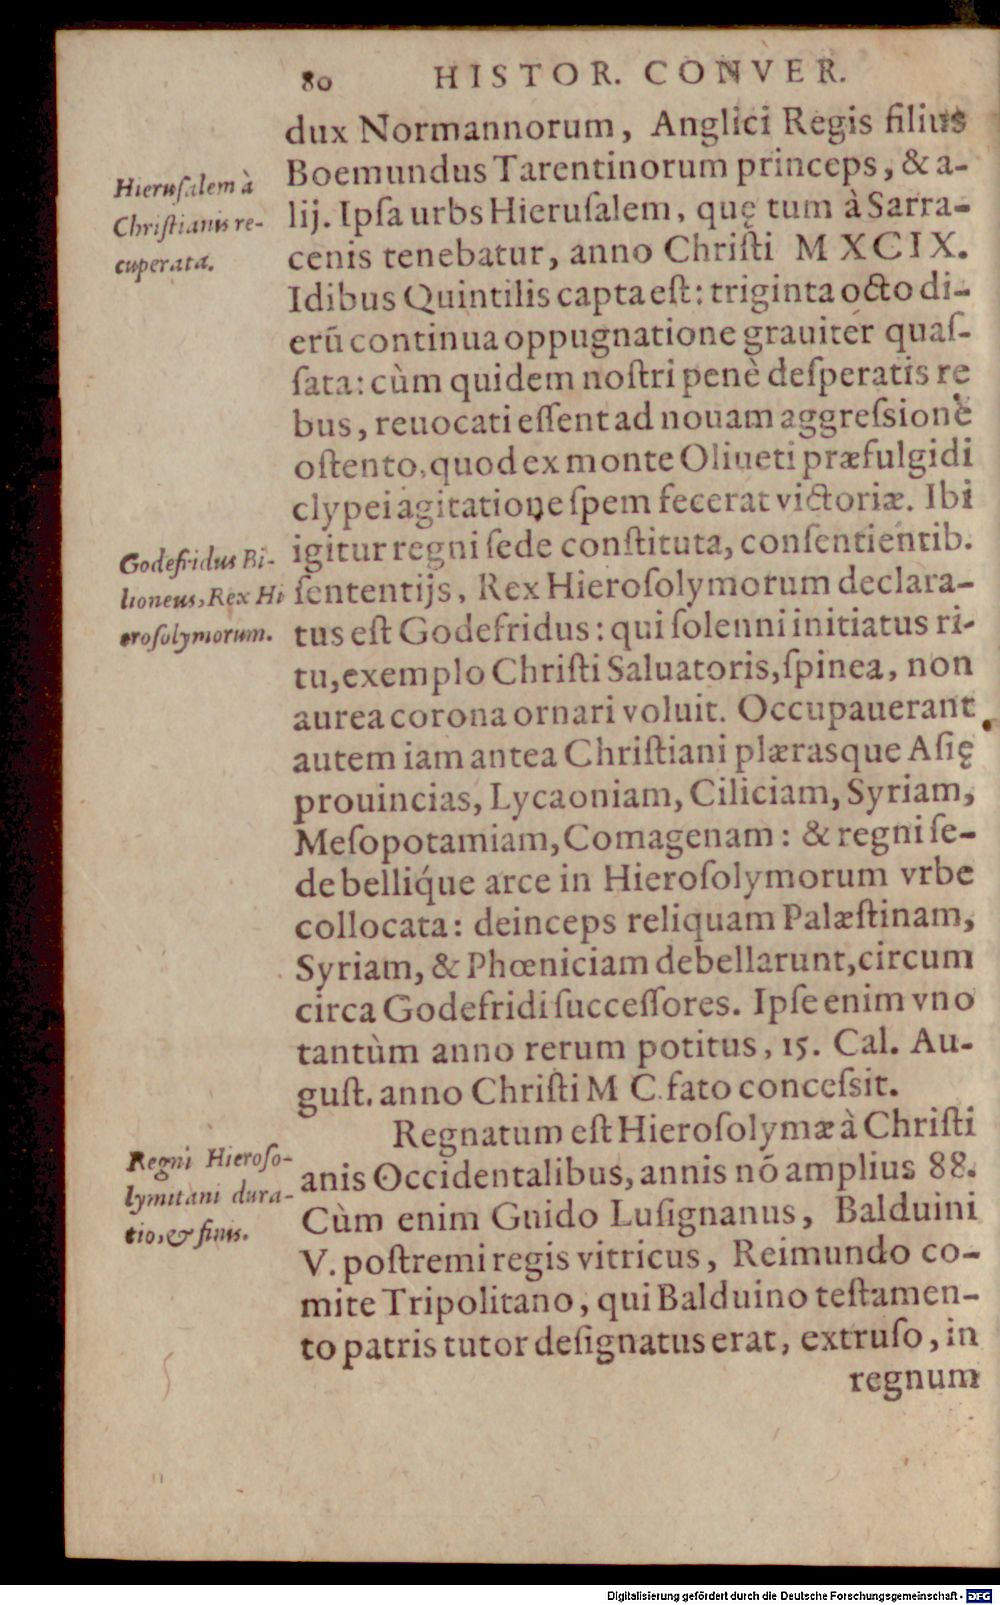 80 HISTOR. CONVER.
dux Normannorum, Anglici Regis filius
Boemundus Tarentinorum princeps, & a-
lij. Ipſa urbs Hieruſalem, quę tum à Sarra-
cenis tenebatur, anno Chriſti M XCIX.
Idibus Quintilis capta eſt: triginta octo di-
erū continua oppugnatione grauiter quaſ-
ſata: cùm quidem noſtri penè deſperatis re
bus, reuocati eſſent ad nouam aggreſsionē
oſtento, quod ex monte Oliueti præfulgidi
clypei agitatione ſpem fecerat victoriæ. Ibi
igitur regni ſede conſtituta, conſentientib.
ſententijs, Rex Hieroſolymorum declara-
tus eſt Godefridus: qui ſolenni initiatus ri-
tu, exemplo Chriſti Saluatoris, ſpinea, non
aurea corona ornari voluit. Occupauerant
autem iam antea Chriſtiani plærasque Aſię
prouincias, Lycaoniam, Ciliciam, Syriam,
Meſopotamiam, Comagenam: & regni ſe-
de belliq́ue arce in Hieroſolymorum vrbe
collocata: deinceps reliquam Palæſtinam,
Syriam, & Phœniciam debellarunt, circum
circa Godefridi ſucceſſores. Ipſe enim vno
tantùm anno rerum potitus, 15. Cal. Au-
guſt. anno Chriſti M C. fato conceſsit.
Regnatum eſt Hieroſolymæ à Chriſti
anis Occidentalibus, annis nō amplius 88.
Cùm enim Guido Luſignanus, Balduini
V. poſtremi regis vitricus, Reimundo co-
mite Tripolitano, qui Balduino teſtamen-
to patris tutor deſignatus erat, extruſo, in
regnum
Hieruſalem à
Chriſtianis re-
cuperata.
Godefridus Bi-
lioneus, Rex Hi
eroſolymorum.
Regni Hieroſo-
lymitani dura-
tio, & finis.
Digitalisierung gefördert durch die Deutsche Forschungsgemeinschaft - DFG